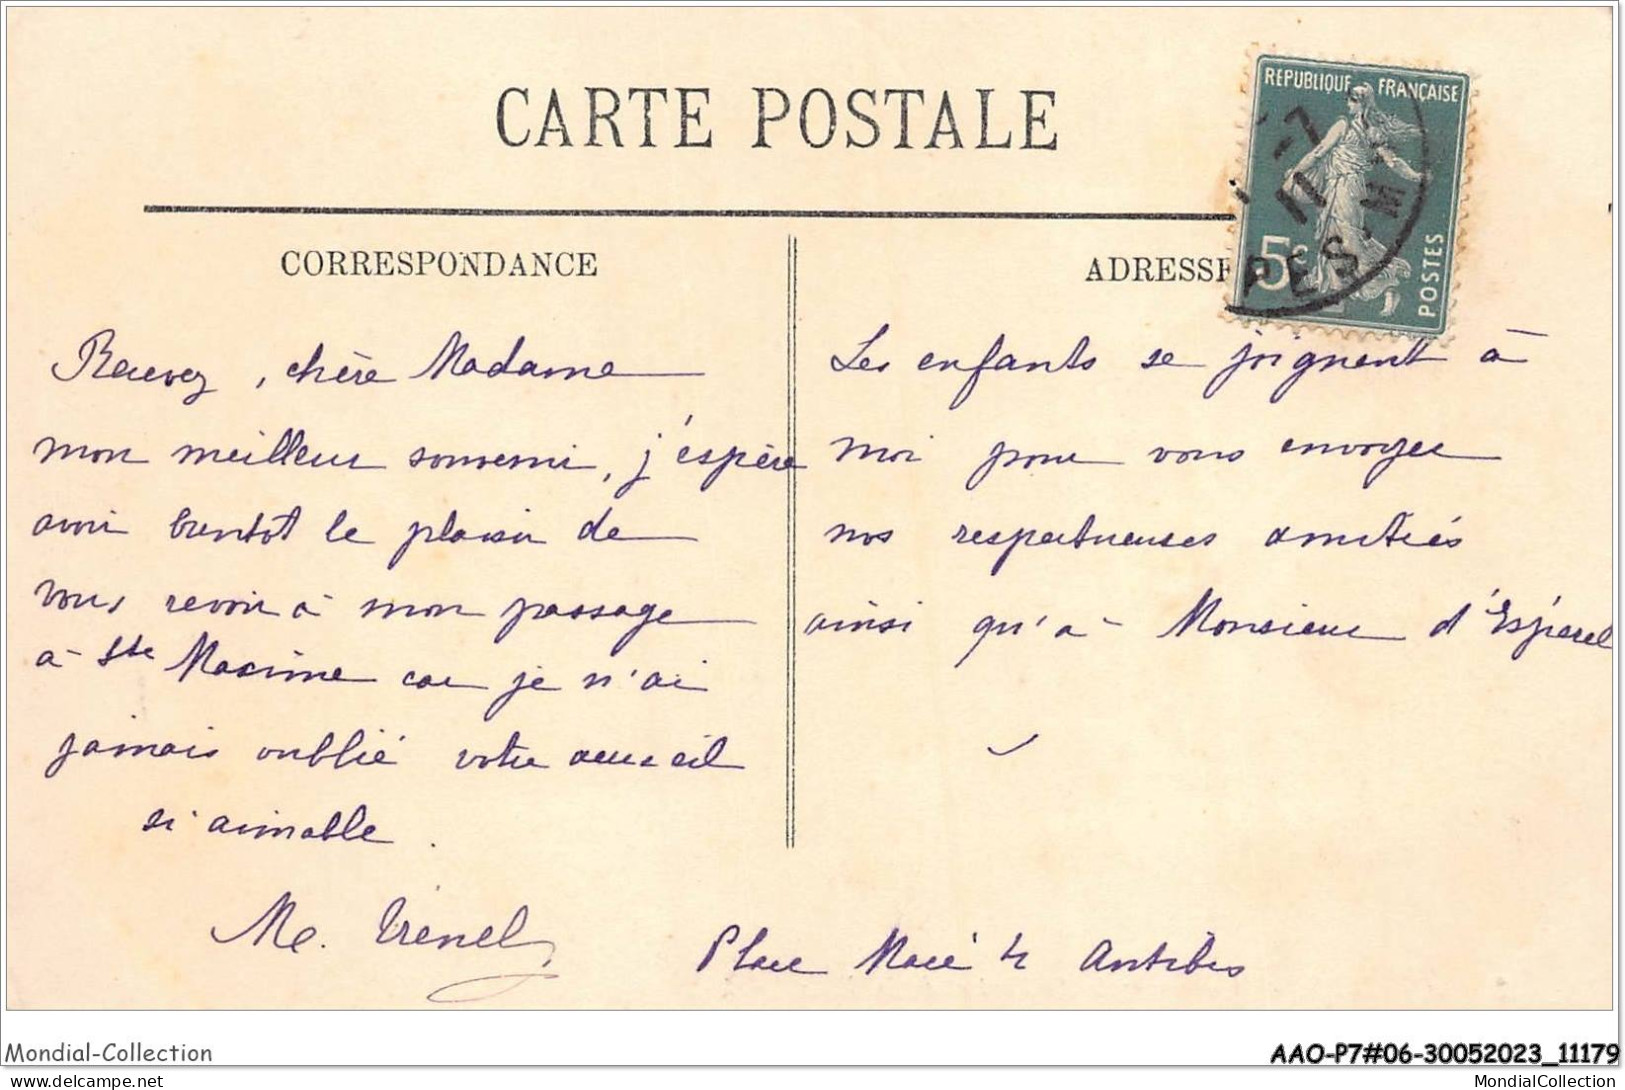 CARTE POSTALE
REPUBLIQUE FRANÇAISE
-7
11
PES-M
5c
POSTES
CORRESPONDANCE
ADRESSE
Recevez, chère Madame
mon meilleur souvenir, j'espère
avoir bientot le plaisir de
vous revoir à mon passage
à Ste Maxime car je n'ai
jamais oublié votre accueil
si aimable.
Me.
Les enfants se joignent à
moi pour vous envoyer
nos respectueuses amitiés
ainsi qu'à Monsieur d'Espérel
Place Macé 4 Antibes
Mondial-Collection
AAO-P7#06-30052023_11179
www.delcampe.net
MondialCollection